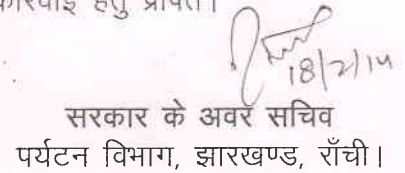 कार्रवाई हेतु प्रेषित।
18/2/14
सरकार के अवर सचिव
पर्यटन विभाग, झारखण्ड, राँची।